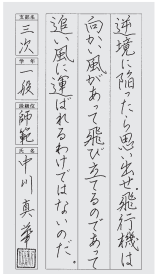 逆境に陥ったら思い出せ。飛行機は
向かい風があって飛び立てるのであって
追い風に運ばれるわけではないのだ。
支部名
三次
学年
一般
段級位
師範
氏名
中川真華